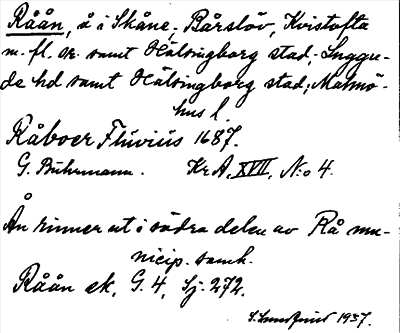 Råån, å i Skåne; Bårslöv, Kvistofta
m. fl. sk. samt Hälsingborg stad; Luggu-
de hd samt Hälsingborg stad; Malmö-
hus l.
Råboer Flúviús 1687.
G. Buhrmann. Kr A, XVII, N:o 4.
Ån rinner ut i södra delen av Rå mu-
nicip. samh.
Råån ek. G. 4, Sj. 272.
1937.